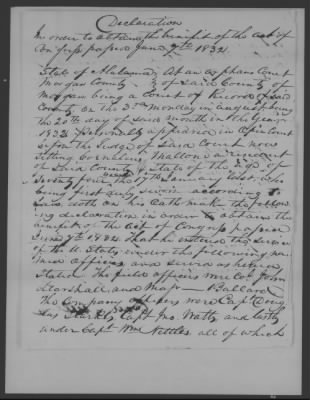 Declaration
In order to obtain the benefit of the act of
Congress passed June 7th 1832
State of Alabama At an orphans Court
Morgan County of said County of
Morgan being a Court of Record of said
County on the 3rd Monday in august being
the 20th day of said month in the Year
1832 personally appeared in open Court
before the Judge of said Court now
sitting Cornelius Mallone a resident
of said County & State of the age of
Seventy four years the 17th January last who
being first duly sworn according to
Law doth on his Oath make the follow
ing declaration in order to obtain the
benefit of the act of Congress passed
June 7th 1832 That he entered the service
of the U. States under the following na
med officers and served as herein
stated The field officers were Col. John
Marshall and Major Ballard
The Company officers were Capt Doug
las Capt Jno. Watts and lastly
under Capt Wm Nettles all of which